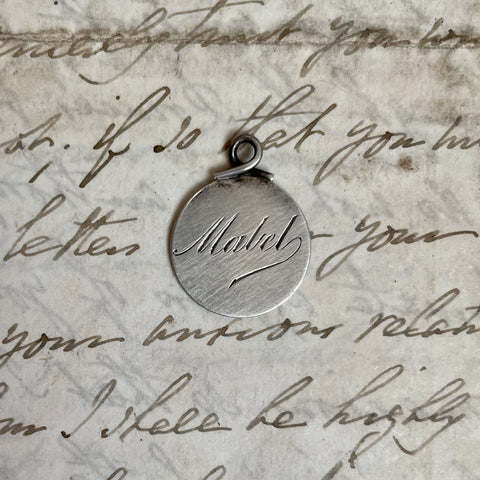 trust you
if so that you
Mabel
letters your
your anxious relati
I shall be highly